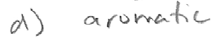 d) aromatic